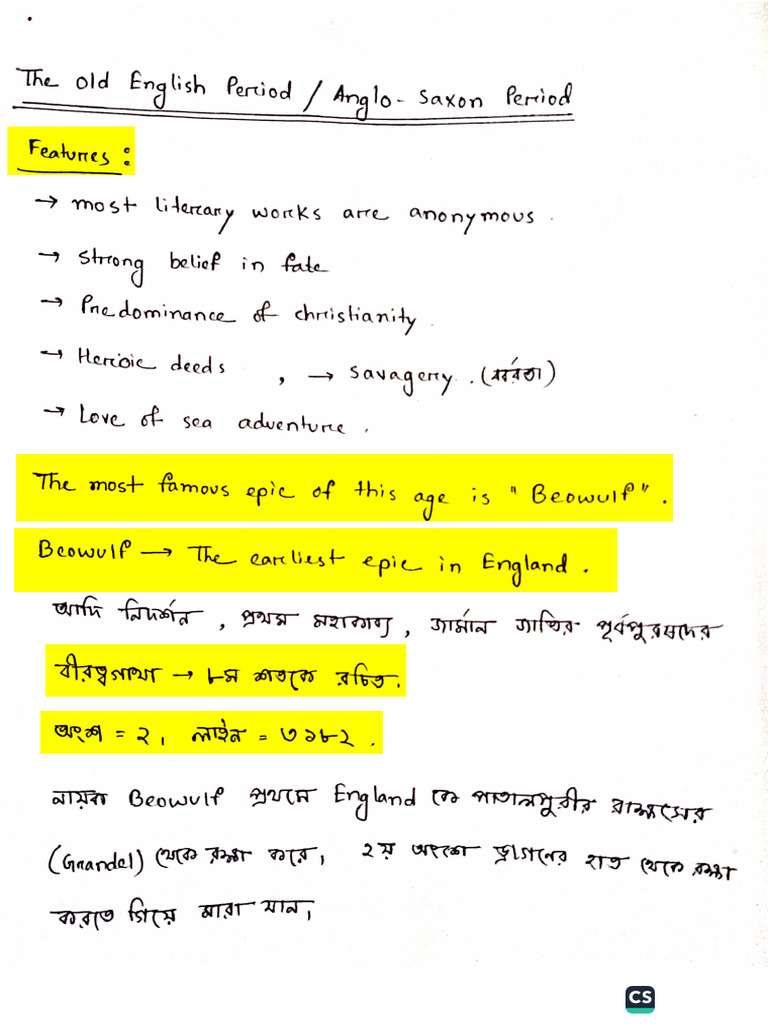 The Old English Period / Anglo-Saxon Period
Features :
→ most literary works are anonymous.
→ Strong belief in fate
→ Predominance of christianity.
→ Heroic deeds , → savagery. (বর্বরতা)
→ Love of sea adventure.
The most famous epic of this age is "Beowulf".
Beowulf → The earliest epic in England.
আদি নিদর্শন, প্রথম মহাকাব্য, জার্মান জাতির পূর্বপুরুষদের
বীরত্বগাথা → ৮ম শতকে রচিত.
অংশ = ২, লাইন = ৩১৮২.
নায়ক Beowulf প্রথমে England কে পাতালপুরীর রাক্ষসের
(Grandel) থেকে রক্ষা করে, ২য় অংশে ড্রাগনের হাত থেকে রক্ষা
করতে গিয়ে মারা যান,
CS